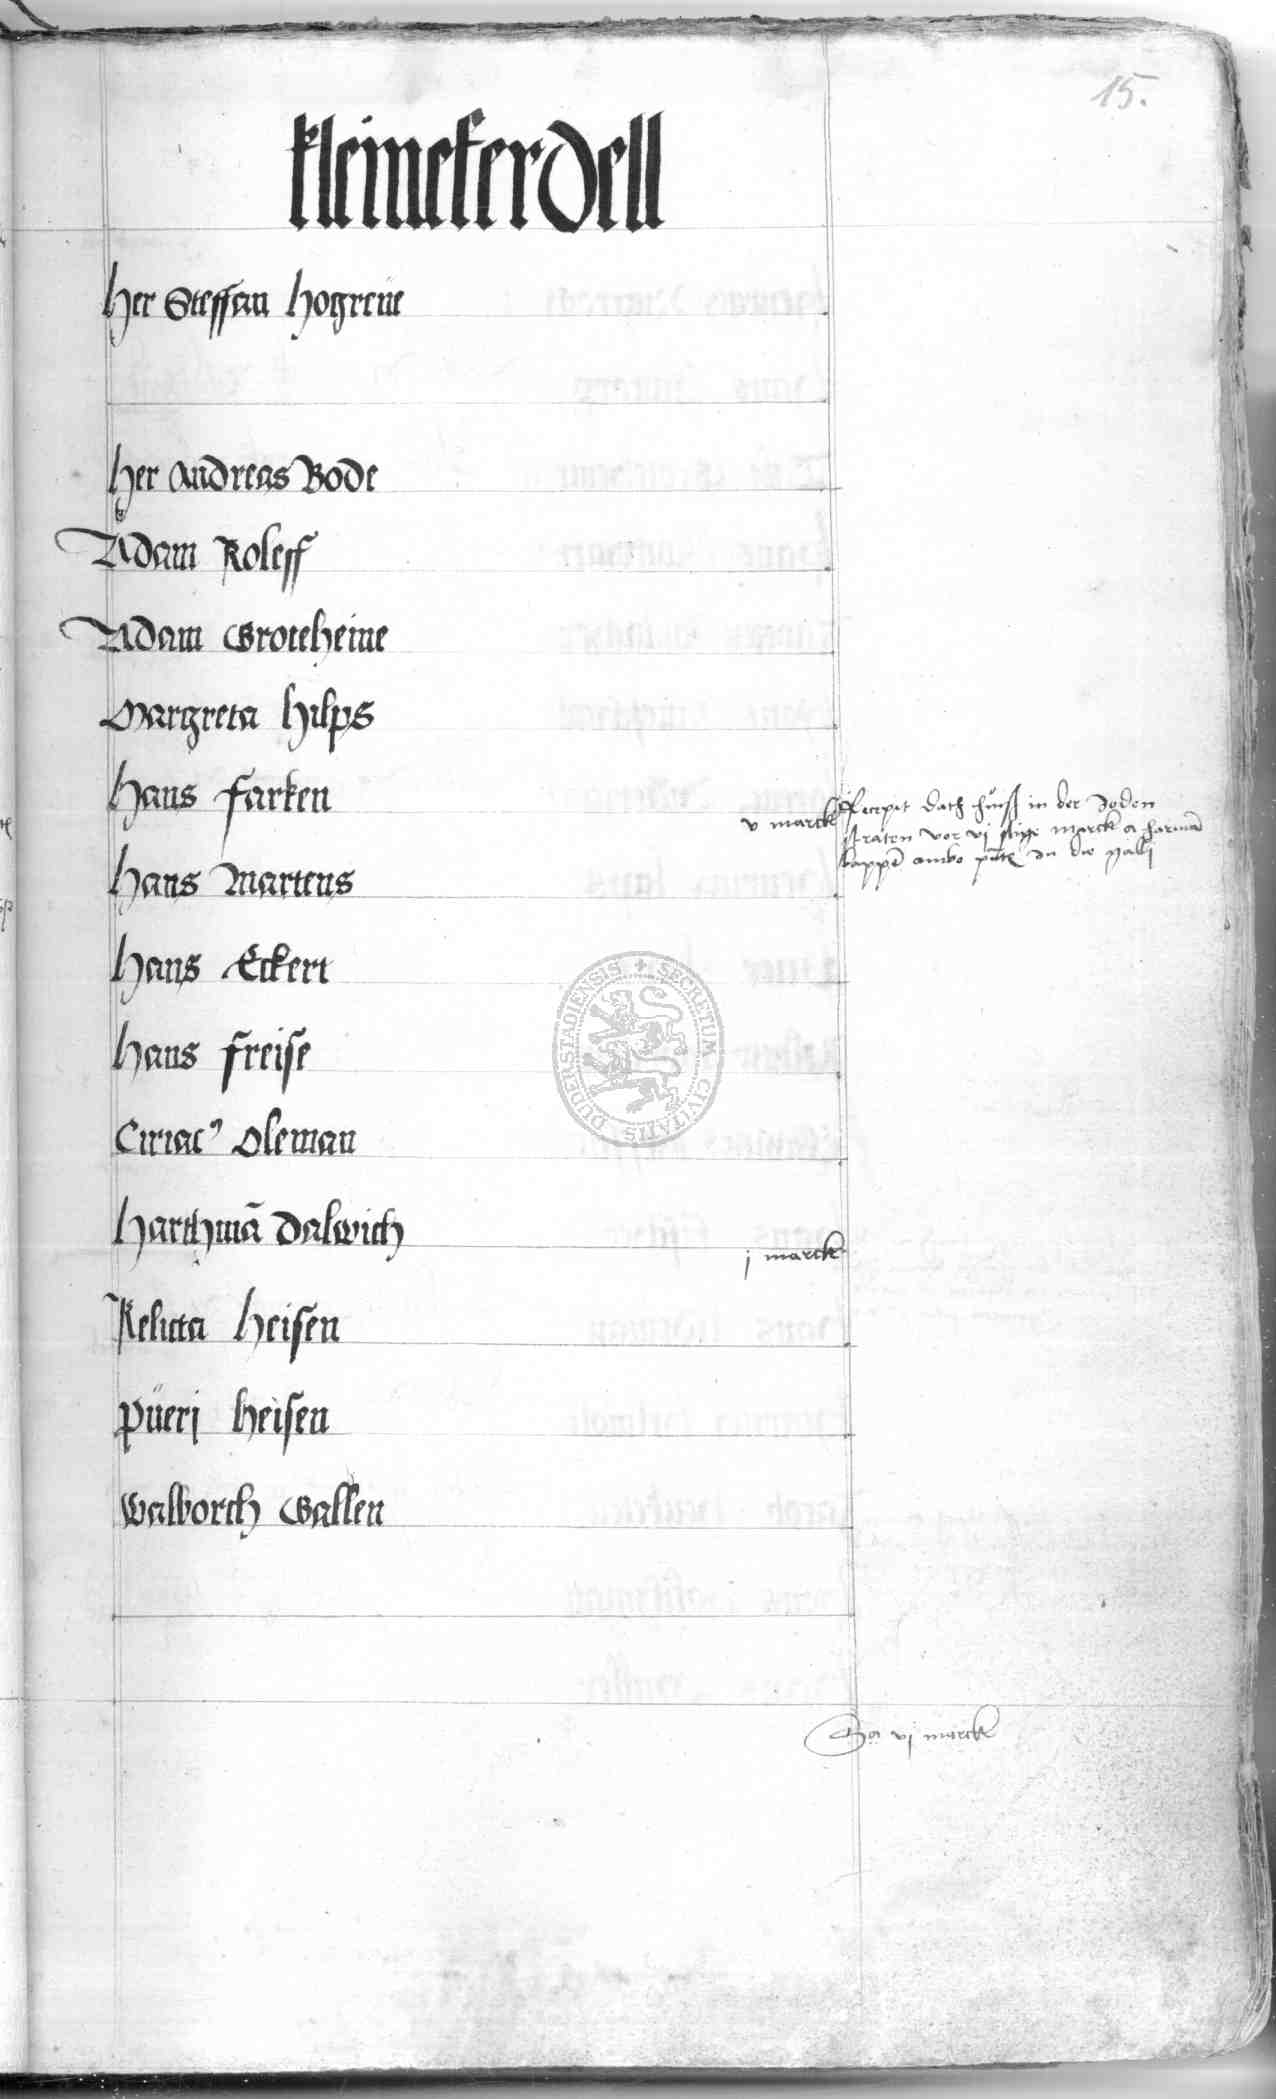 15.
kleineferdell
Her Steffan Hogreue
Her Andreas Bode
Adam Roleff
Adam Groteheine
Margreta hilps
Hans Farken
v marck
Recepit dath hüß in der Joden
straten vor vj marck a harmā
ambo die Galli
Hans Martens
Hans Eckert
Hans Freise
Ciriacꝰ Oleman
Harthmā Dalwich
j marck
Relicta Heisen
Püeri heisen
Walborch Gallen
Sa vj marck
SECRETUM CIVITATIS DUDERSTADIENSIS